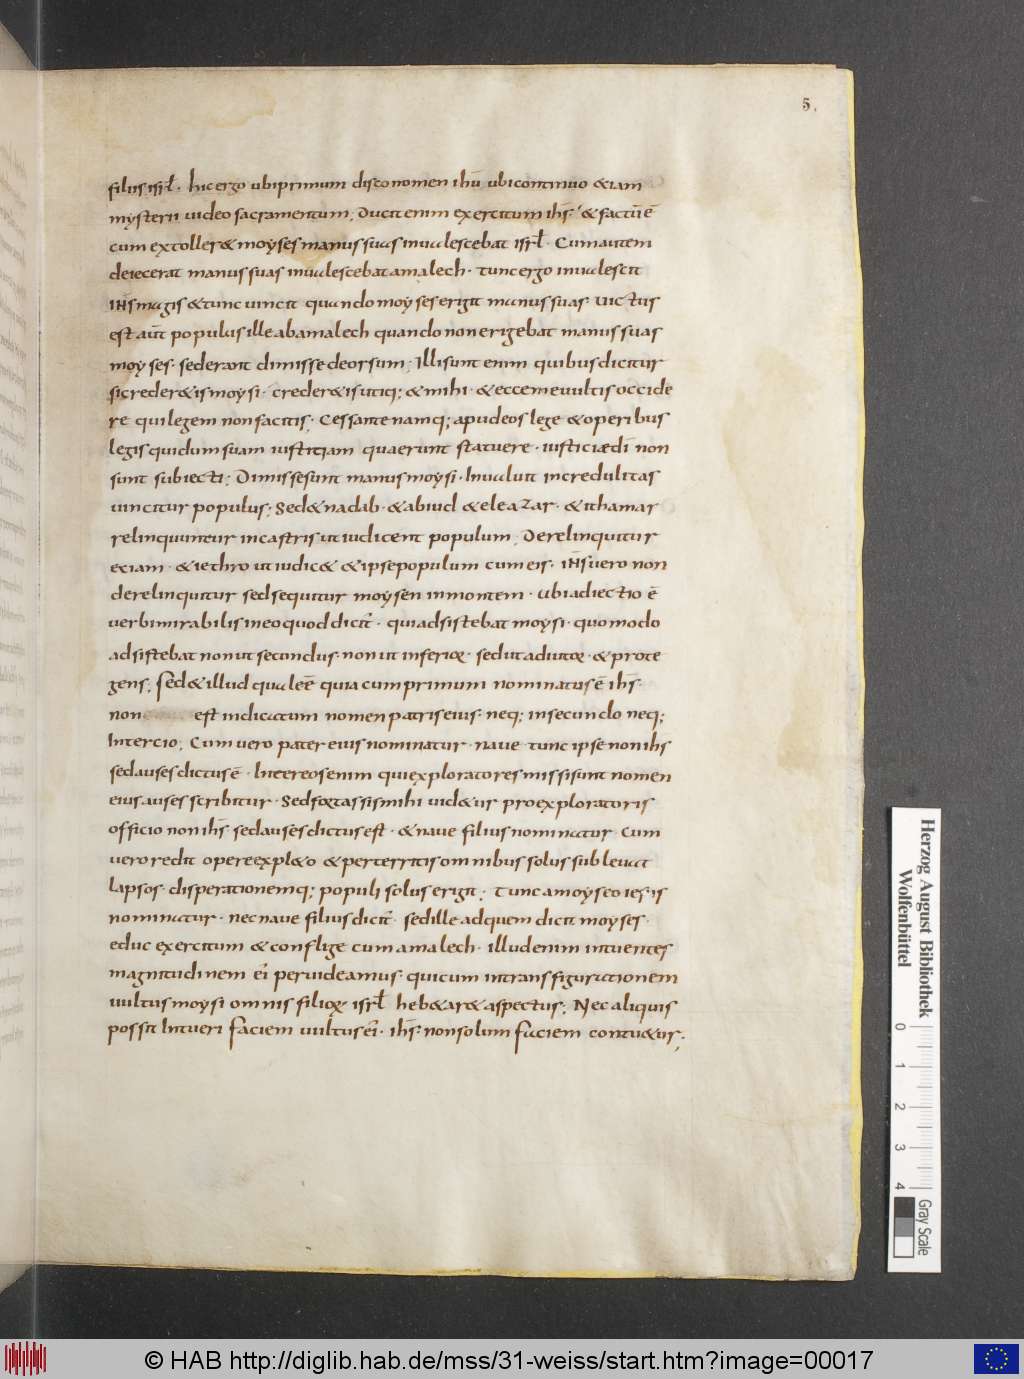 5.
filiis isrł. hic ergo ubi primum disco nomen ihū ubi continuo &iam
mysterii uideo sacramentum. Ducit enim exercitum ihs̄. & factū ē
cum extoller& moyses manus suas inualescebat isrł. Cum autem
deiecerat manus suas inualescebat amalech. tunc ergo inualescit
ih̄s magis & tunc uincit quando moyses erigit manus suas. uictus
est aūt populus ille ab amalech quando non erigebat manus suas
moyses. sederant dimisse deorsum; Illi sunt enim quibus dicitur
si creder&is moysi. creder&is utiq; & mihi. & ecce me uultis occide
re qui legem non facitis. Cessante namq; apud eos lege & operibus
legis qui dum suam iustitiam quaerunt statuere. iusticiæ dī non
sunt subiecti; Dimisse sunt manus moysi. Inualuit incredulitas
uincitur populus; Sed & nadab. & abiud & eleazar. & ithamar
relinquuntur in castris ut iudicent populum. Derelinquitur
eciam. & iethro ut iudic& & ipse populum cum eis. ih̄s uero non
derelinquitur sed sequitur moysen in montem. ubi adiectio ē
uerbi mirabilis in eo quod dicit̄. qui adsistebat moysi. quomodo
adsistebat non ut secundus. non ut inferior. sed ut adiutor. & prote
gens. Sed & illud quale ē quia cum primum nominatus ē ihs̄.
non est indicatum nomen patris eius. neq; in secundo neq;
In tercio. Cum uero pater eius nominatur. naue tunc ipse non ihs̄
sed auses dictus ē. Inter eos enim qui exploratores missi sunt nomen
eius auses scribitur. Sed fortassis mihi uid&ur pro exploratoris
officio non ihs̄ sed auses dictus est. & naue filius nominatur. Cum
uero redit opere expl&o & perterritis omnibus solus subleuat
lapsos. disperationemq; populi solus erigit. tunc a moyseo iesus
nominatur. nec naue filius dicit̄ sed ille ad quem dicit moyses.
educ exercitum & conflige cum amalech. illud enim intuentes
magnitudinem eī peruideamus. qui cum in transfiguratione
uultus moysi omnis filior. isrł heb&ar& aspectus. Nec aliquis
possit Intueri faciem uultus eī. ihs̄. non solum faciem contu&ur.
Herzog August Bibliothek
Wolfenbüttel
0 1 2 3 4
Gray Scale
© HAB http://diglib.hab.de/mss/31-weiss/start.htm?image=00017